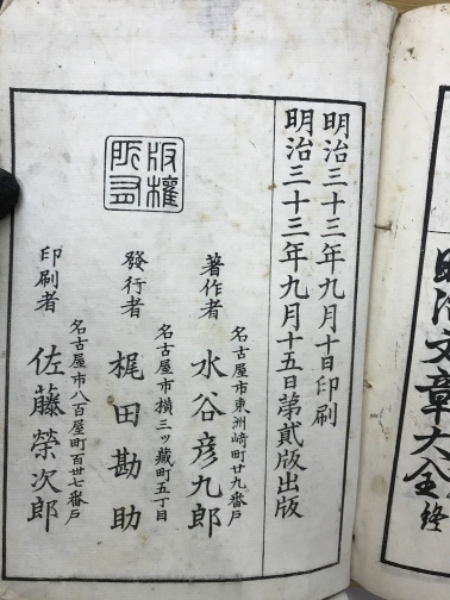 明治文章大全終
明治三十三年九月十日印刷
明治三十三年九月十五日第貳版出版
版權所有
著作者
名古屋市東洲崎町廿九番戸
水谷彦九郎
發行者
名古屋市横三ッ藏町五丁目
梶田勘助
印刷者
名古屋市八百屋町百卅七番戸
佐藤榮次郎